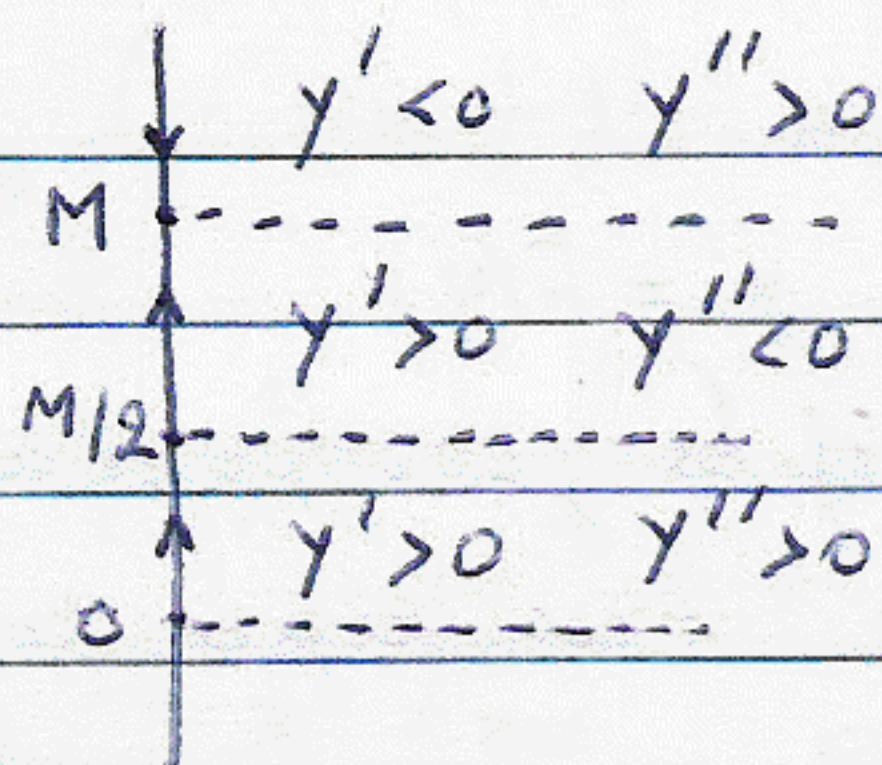 y' <0 y'' >0
M
y' >0 y'' <0
M/2
y' >0 y'' >0
0